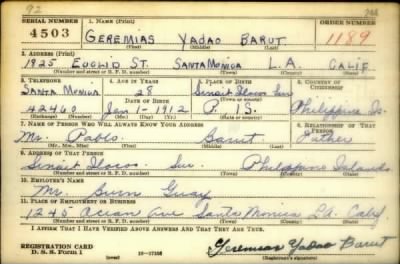 92
SERIAL NUMBER 1. NAME (Print) ORDER NUMBER
4503 GEREMIAS YADAO BARUT 1189
(First) (Middle) (Last)
2. ADDRESS (Print)
1925 EUCLID ST. SANTA MONICA L.A. CALIF.
(Number and street or R. F. D. number) (Town) (County) (State)
3. TELEPHONE 4. AGE IN YEARS 5. PLACE OF BIRTH 6. COUNTRY OF CITIZENSHIP
Santa Monica 28 Sinait Ilocos Sur
(Exchange) DATE OF BIRTH (Town or county)
42460 Jan-1-1912 P. IS. Philippine Is.
(Number) (Mo.) (Day) (Yr.) (State or country)
7. NAME OF PERSON WHO WILL ALWAYS KNOW YOUR ADDRESS 8. RELATIONSHIP OF THAT PERSON
Mr. Pablo Barut Father
(Mr., Mrs., Miss) (First) (Middle) (Last)
9. ADDRESS OF THAT PERSON
Sinait Ilocos Sur Philippine Islands
(Number and street or R. F. D. number) (Town) (County) (State)
10. EMPLOYER'S NAME
Mr. Guay
11. PLACE OF EMPLOYMENT OR BUSINESS
1245 Ocean Ave Santa Monica LA. Calif
(Number and street or R. F. D. number) (Town) (County) (State)
I AFFIRM THAT I HAVE VERIFIED ABOVE ANSWERS AND THAT THEY ARE TRUE.
REGISTRATION CARD
D. S. S. Form 1 (over) Geremias Yadao Barut
(Registrant's signature)